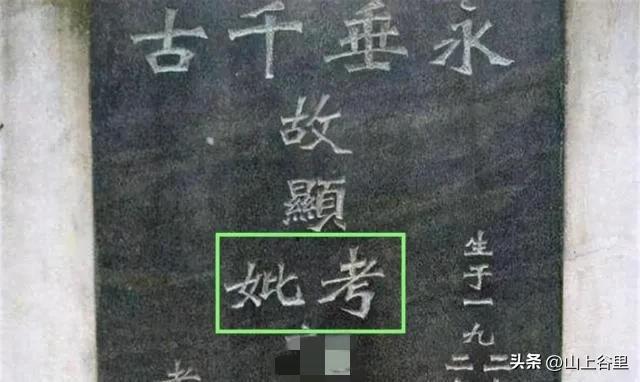 永垂千古
生于一九二
故顯考妣
头条 @山上谷里